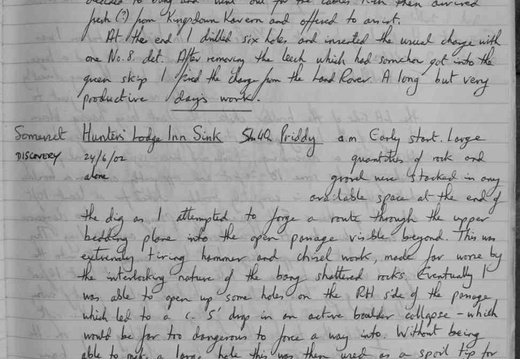 decided to bring and went out for the cables. Ken then arrived
fresh (?) from Kingsdown tavern and offered to assist.
At the end I drilled six holes and inserted the usual charge with
one No. 8. det. After removing the leech which had somehow got into the
green skip I fired the charge from the Land Rover. A long but very
productive days work.
Somerset Hunters Lodge Inn Sink 5h40 Priddy a.m Early start. Large
DISCOVERY 24/6/02 quantities of rock and
alone gravel were stacked in any
available space at the end of
the dig as I attempted to forge a route through the upper
bedding plane into the open passage visible beyond. This was
extremely tiring hammer and chisel work, made far worse by
the interlocking nature of the bang shattered rocks. Eventually I
was able to open up some holes on the RH side of the passage
which led to a c. 5' drop in an active boulder collapse - which
would be far too dangerous to force a way into. Without being
able to make a large hole this was then used as a spoil tip for